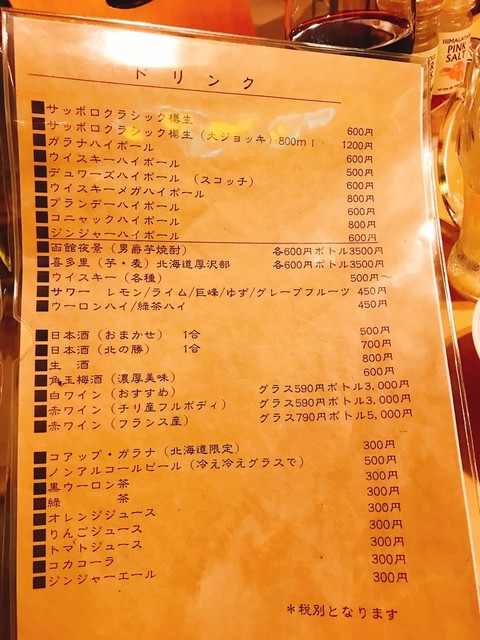 ドリンク
■サッポロクラシック樽生 600円
■サッポロクラシック樽生（大ジョッキ）800ml 1200円
■ガラナハイボール 600円
■ウイスキーハイボール 500円
■デュワーズハイボール （スコッチ） 600円
■ウイスキーメガハイボール 800円
■ブランデーハイボール 600円
■コニャックハイボール 800円
■ジンジャーハイボール 600円
■函館夜景（男爵芋焼酎） 各600円ボトル3500円
■喜多里（芋・麦）北海道厚沢部 各600円ボトル3500円
■ウイスキー（各種） 500円～
■サワー レモン/ライム/巨峰/ゆず/グレープフルーツ 450円
■ウーロンハイ/緑茶ハイ 450円
■日本酒（おまかせ） 1合 500円
■日本酒（北の勝） 1合 700円
■生 酒 800円
■角玉梅酒（濃厚美味） 600円
■白ワイン（おすすめ） グラス590円ボトル3,000円
■赤ワイン（チリ産フルボディ） グラス590円ボトル3,000円
■赤ワイン（フランス産） グラス790円ボトル5,000円
■コアップ・ガラナ（北海道限定） 300円
■ノンアルコールビール（冷え冷えグラスで） 500円
■黒ウーロン茶 300円
■緑 茶 300円
■オレンジジュース 300円
■りんごジュース 300円
■トマトジュース 300円
■コカコーラ 300円
■ジンジャーエール 300円
＊税別となります
PINK
SALT